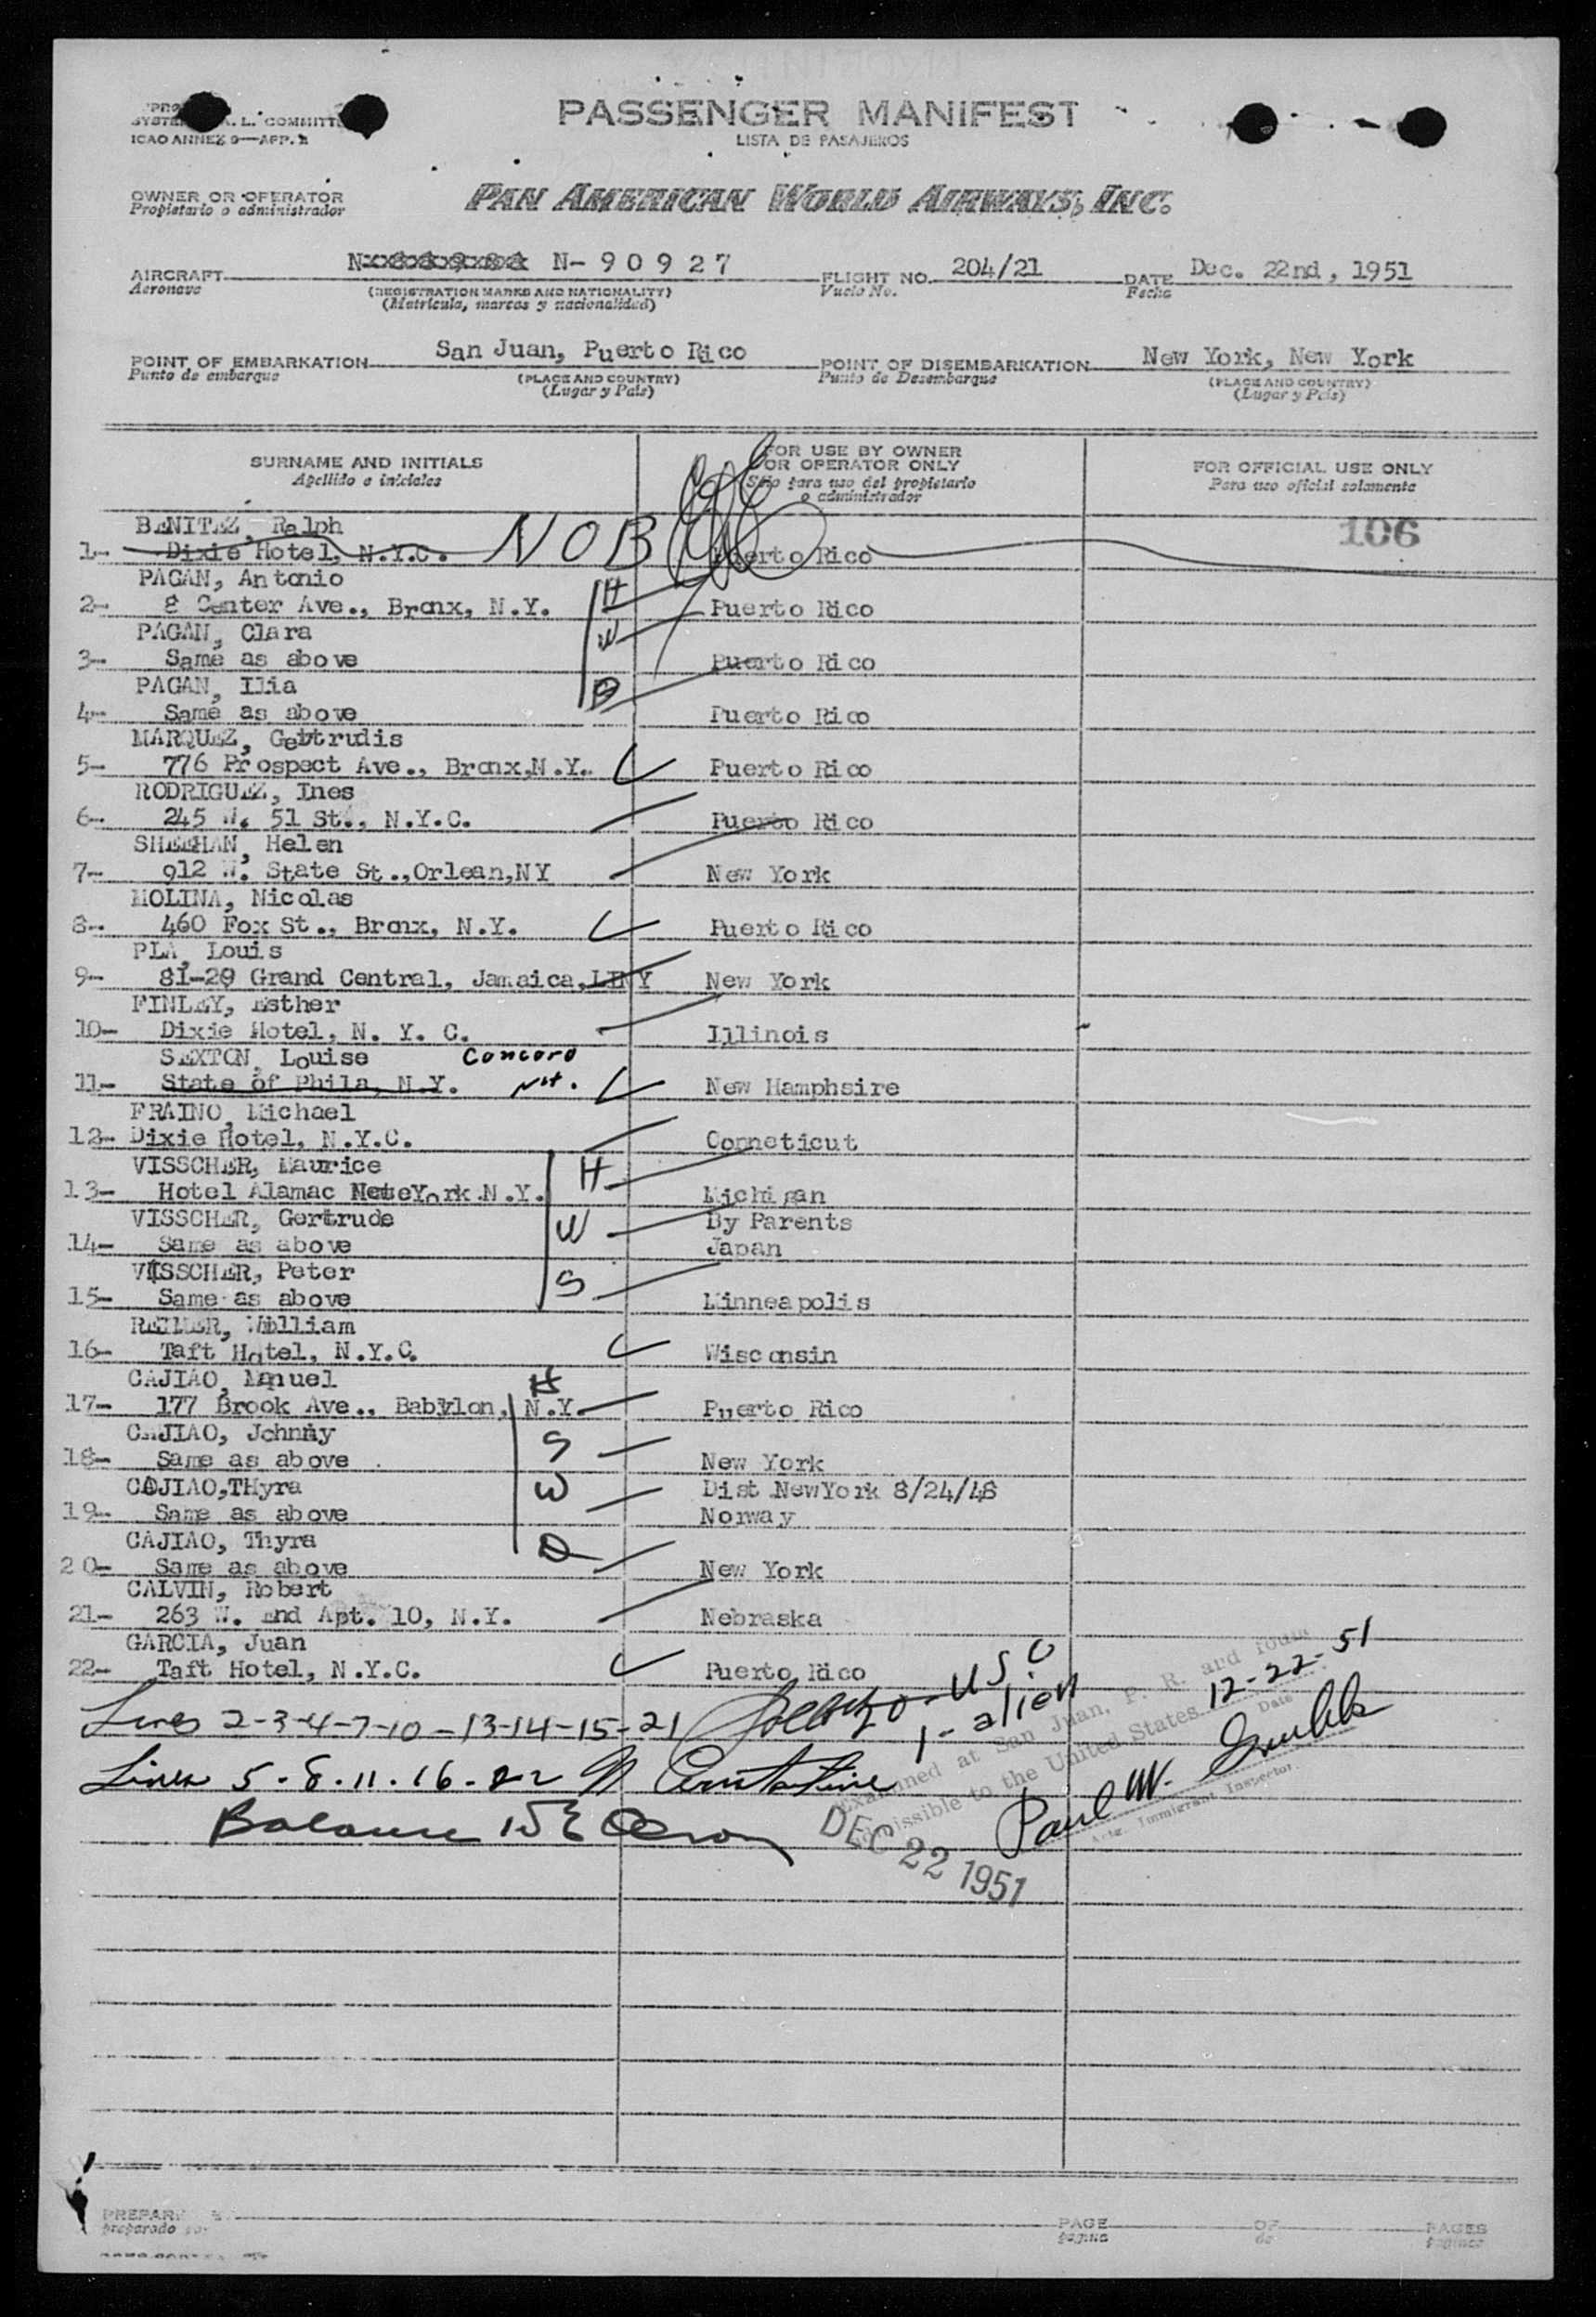 PASSENGER MANIFEST
LISTA DE PASAJEROS
ICAO ANNEX 9—APP.
OWNER OR OPERATOR
Propietario o administrador
PAN AMERICAN WORLD AIRWAYS, INC.
AIRCRAFT N-90927 FLIGHT NO. 204/21 DATE Dec. 22nd, 1951
Aeronave (REGISTRATION MARKS AND NATIONALITY) Vuelo No. Fecha
(Matrícula, marcas y nacionalidad)
POINT OF EMBARKATION San Juan, Puerto Rico POINT OF DISEMBARKATION New York, New York
Punto de embarque (PLACE AND COUNTRY) Punto de Desembarque (PLACE AND COUNTRY)
(Lugar y País) (Lugar y País)
SURNAME AND INITIALS
Apellido e iniciales
FOR USE BY OWNER
OR OPERATOR ONLY
Sólo para uso del propietario
o administrador
FOR OFFICIAL USE ONLY
Para uso oficial solamente
106
BENITEZ, Ralph
1- Dixie Hotel, N.Y.C. NOB Puerto Rico
PAGAN, Antonio
2- 8 Center Ave., Bronx, N.Y. H Puerto Rico
PAGAN, Clara
3- Same as above W Puerto Rico
PAGAN, Ilia
4- Same as above D Puerto Rico
MARQUEZ, Gettrudis
5- 776 Prospect Ave., Bronx,N.Y. Puerto Rico
RODRIGUEZ, Ines
6- 245 W. 51 St., N.Y.C. Puerto Rico
SHEEHAN, Helen
7- 912 W. State St.,Orlean,NY New York
MOLINA, Nicolas
8- 460 Fox St., Bronx, N.Y. Puerto Rico
PLA, Louis
9- 81-29 Grand Central, Jamaica,LINY New York
FINLEY, Esther
10- Dixie Hotel, N. Y. C. Illinois
SEXTON, Louise Concord
11- State of Phila, N.Y. NH. New Hamphsire
FRAINO, Michael
12- Dixie Hotel, N.Y.C. Conneticut
VISSCHER, Maurice H
13- Hotel Alamac York N.Y. Michigan
VISSCHER, Gertrude W By Parents
14- Same as above Japan
VISSCHER, Peter S
15- Same as above Minneapolis
REIMER, William
16- Taft Hotel, N.Y.C. Wisconsin
CAJIAO, Manuel H
17- 177 Brook Ave., Babylon, N.Y. Puerto Rico
CAJIAO, Johnny S
18- Same as above New York
CAJIAO,THyra W Dist NewYork 8/24/48
19- Same as above Norway
CAJIAO, Thyra D
20- Same as above New York
CALVIN, Robert
21- 263 W. End Apt. 10, N.Y. Nebraska
GARCIA, Juan
22- Taft Hotel, N.Y.C. Puerto Rico
Lines 2-3-4-7-10-13-14-15-21 USC
1-alien
Lines 5-8-11-16-22
Balance
Examined at San Juan, P. R. and found
admissible to the United States 12-22-51
Date
Paul W.
Actg. Immigrant Inspector.
DEC 22 1951
PREPARED
preparado por
PAGE OF PAGES
página de páginas